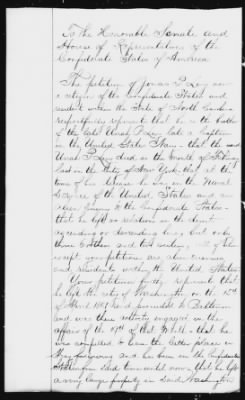 To the Honorable Senate and
House of Representatives of the
Confederate States of America
The petition of Jonas P. Levy now
a citizen of the Confederate States and
resident within the State of North Carolina
respectfully represents that he is the brother
of the late Uriah P. Levy late a Captain
in the United States Navy - that the said
Uriah P. Levy died in the month of
last in the City of New York that at the
time of his decease he was in the Naval
Service of the United States and an
alien Enemy to the Confederate States -
that he left no relations in the direct
ascending or descending line, but only
three brothers and two sisters, all of whom
except your petitioner are alien enemies
and residents within the United States
Your petitioner further represents that
he left the city of Washington on the 15th
of April 1861 and proceeded to Baltimore
and was there actively engaged in the
affair of the 19th of that Month - that he
was compelled to leave the latter place in
May following and has been in the Confederate
States from that time until now, that he left
a very large property in said Washington